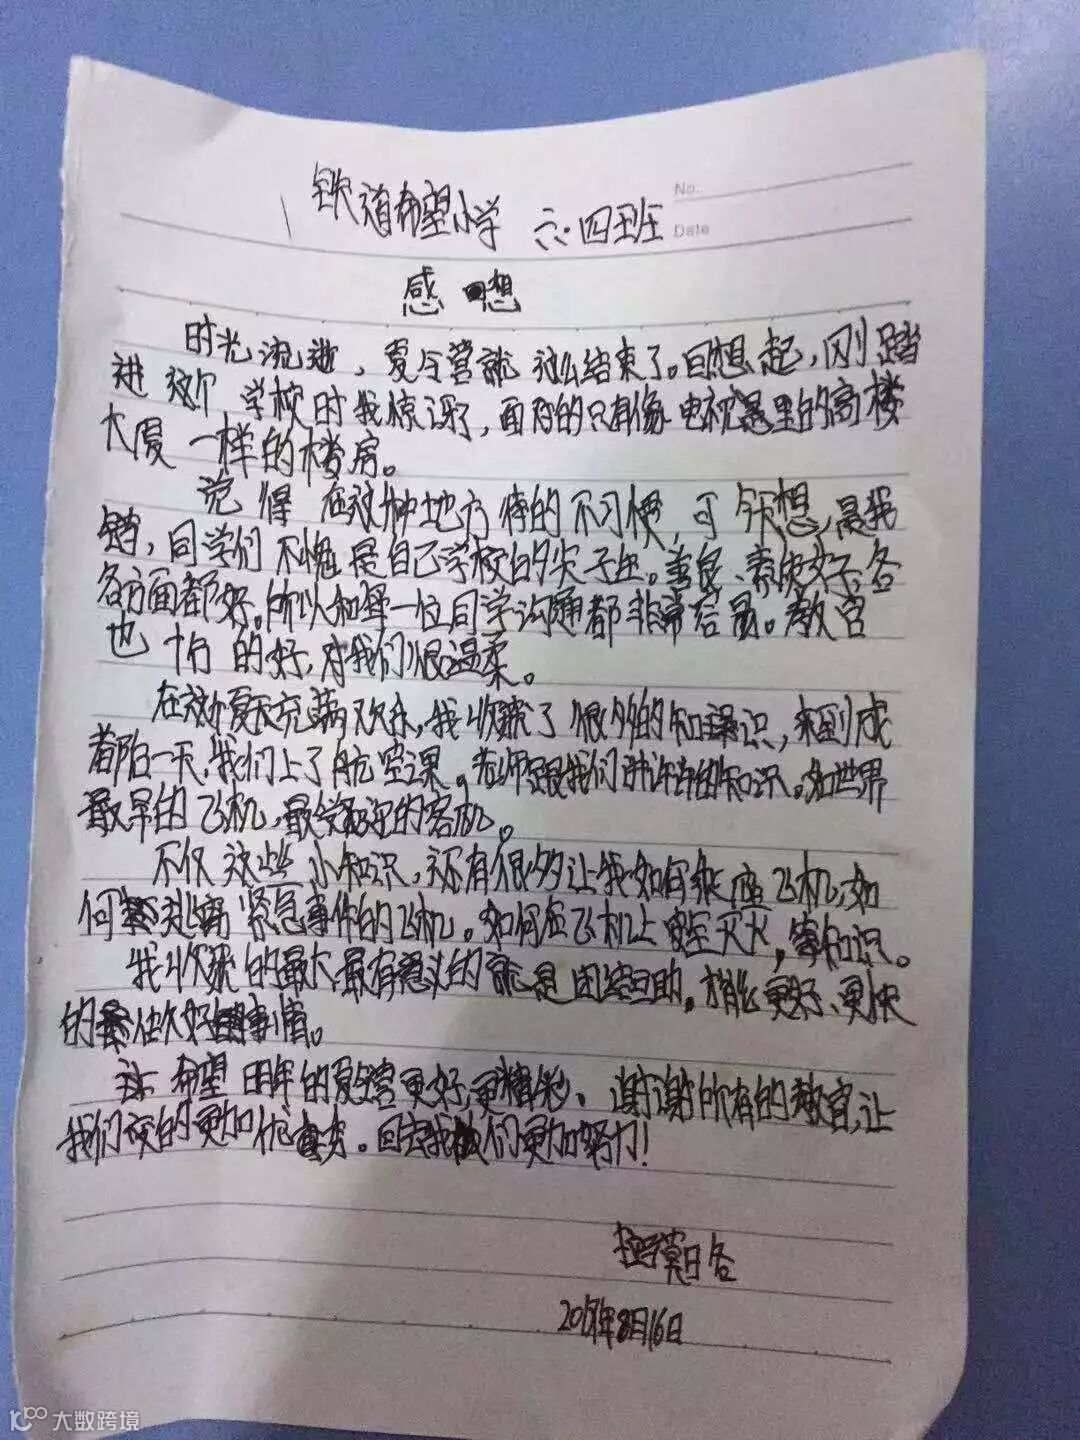 铁道希望小学 六.四班
No.
Date
感想
时光流逝，夏令营就这么结束了。回想起，刚踏
进这个学校时我惊讶了，面前的只有像电视里的高楼
大厦一样的楼房。
觉得在这种地方待的不习惯，可今天想，是我
错，同学们不愧是自己学校的尖子生。善良、素质好、各
各方面都好。所以和每一位同学沟通都非常容易。教官
也十分的好，对我们很温柔。
在这个夏天充满欢乐，我收获了很多的知识，来到成
都后一天，我们上了航空课。老师跟我们讲许许的知识。如世界
最早的飞机，最受的客机。
不仅这些小知识，还有很多让我如何乘座飞机，如
何逃离紧急事件的飞机。如何在飞机上安全灭火，等知识。
我收获的最大、最有意义的就是团结互助。才能更好、更快
的做好事情。
希望明年的夏令营更好，更精彩、谢谢所有的教官，让
我们变的更加优秀。回去我们更加努力！
莫日各
年8月16日
大数跨境